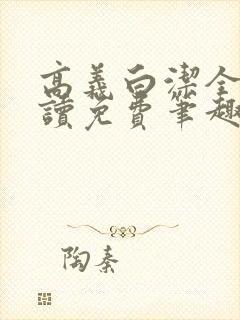 高義白潔全
讀免費筆趣
陶秦